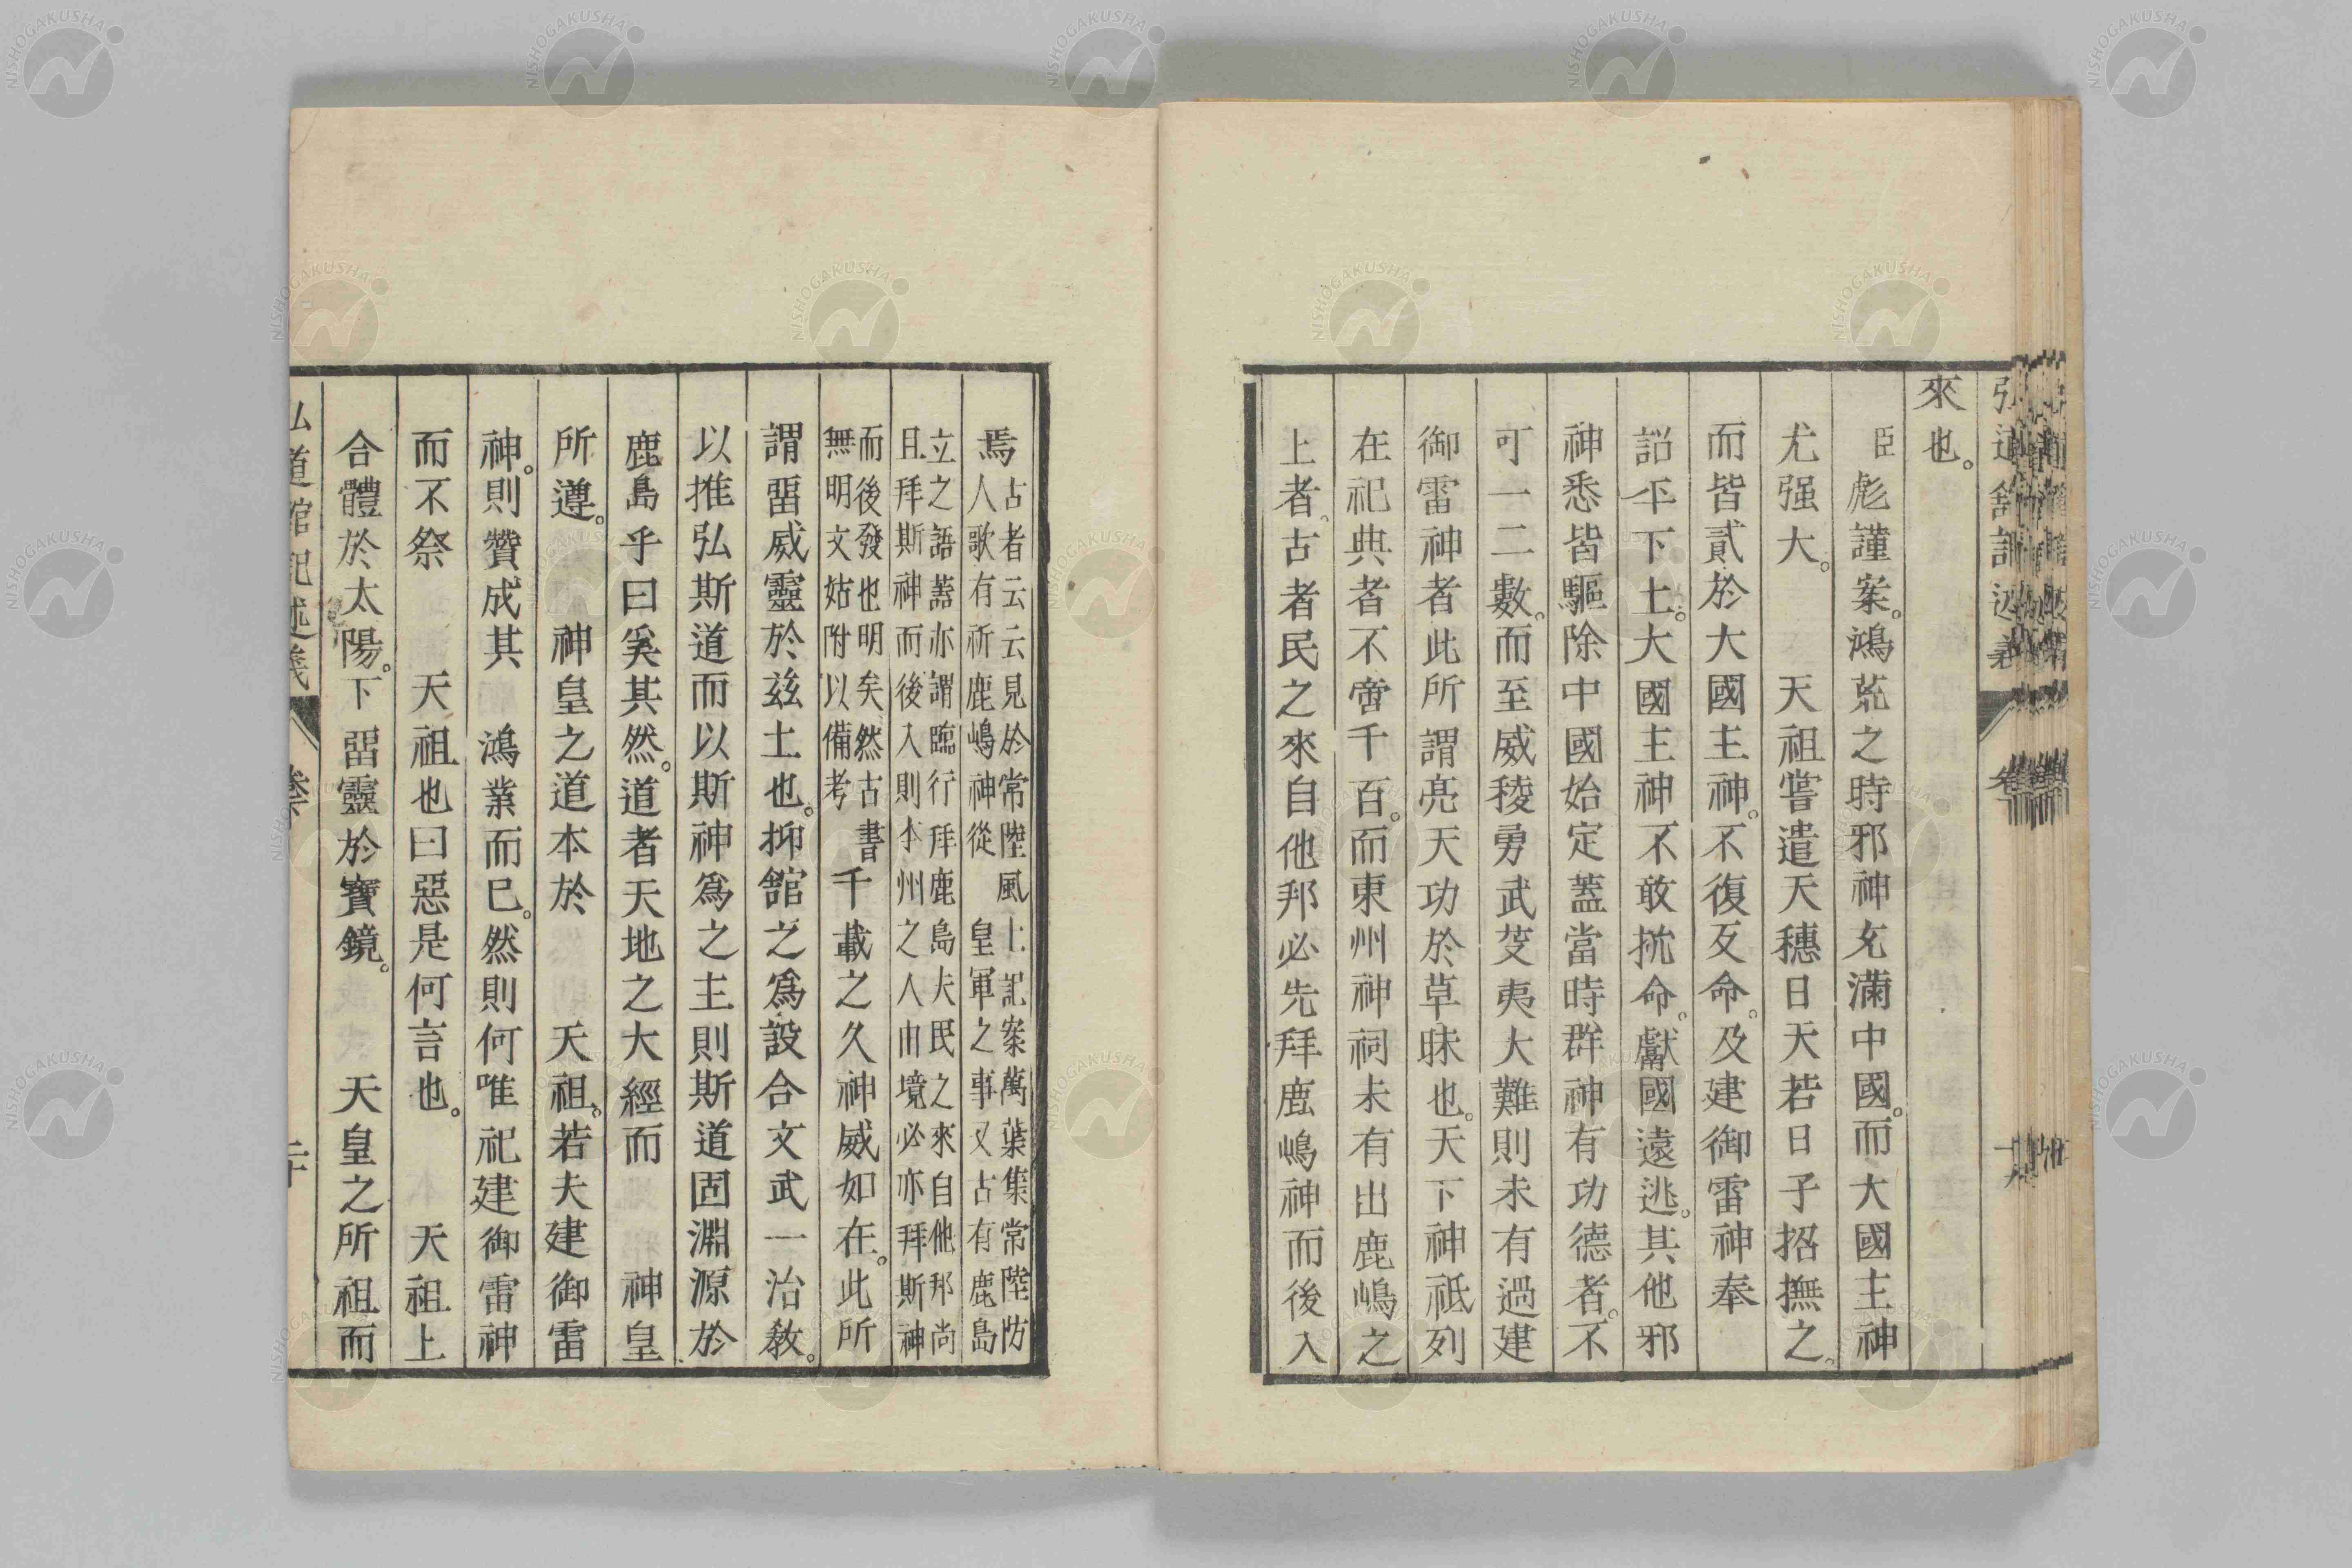 來也。
臣彪謹案。鴻荒之時邪神充滿中國。而大國主神
尤强大。天祖嘗遣天穗日天若日子招撫之。
而皆貳於大國主神。不復反命。及建御雷神奉
詔平下土。大國主神不敢抗命。獻國遠逃。其他邪
神悉皆驅除中國始定蓋當時群神有功德者。不
可一二數。而至威稜勇武芟夷大難則未有過建
御雷神者此所謂亮天功於草昧也。天下神祇列
在祀典者不啻千百。而東州神祠未有出鹿嶋之
上者。古者民之來自他邦必先拜鹿嶋神而後入
焉古者云云見於常陸風土記案萬葉集常陸防
人歌有祈鹿嶋神從皇軍之事又古有鹿島
立之語蓋亦謂臨行拜鹿島夫民之來自他邦尚
且拜斯神而後入則本州之人由境必亦拜斯神
而後發也明矣然古書
無明文姑附以備考
千載之久神威如在。此所
謂畱威靈於兹土也。抑館之爲設合文武一治教。
以推弘斯道而以斯神爲之主則斯道固淵源於
鹿島乎曰奚其然。道者天地之大經而神皇
所遵。神皇之道本於天祖。若夫建御雷
神。則贊成其鴻業而已。然則何唯祀建御雷神
而不祭天祖也曰惡是何言也。天祖上
合體於太陽。下畱靈於寶鏡。天皇之所祖而
弘道館記述義
二十
NISHOGAKUSHA